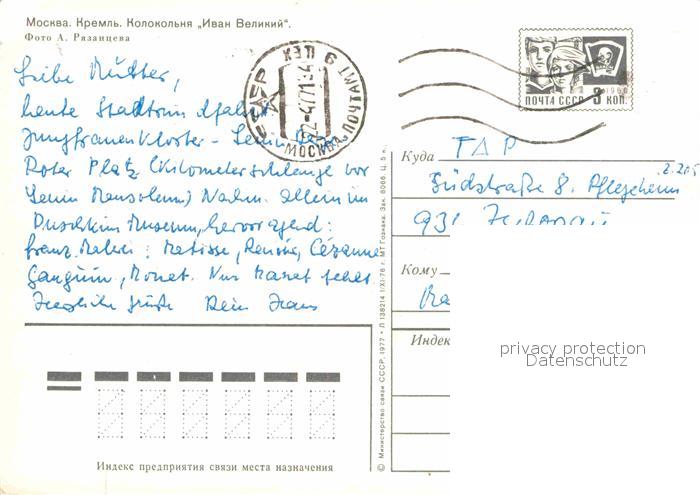 Москва. Кремль. Колокольня „Иван Великий".
Фото А. Рязанцева
Liebe Mutter,
heute Stadtrundfahrt
Jungfrauenkloster - Lenin
Roter Platz (Kilometerschlange vor
Lenin Mausoleum) Nachm. allein im
Puschkin Museum, hervorragend:
franz. Malerei: Matisse, Renoir, Cézanne
Gauguin, Monet. Nur Manet fehlt.
Herzliche Grüße Dein Hans
СССР
МОСКВА
ПОЧТАМТ
ЦЕХ 9
ПОЧТА СССР 3 КОП.
1966
Куда
Südstraße 8. Pflegeheim
2.205
Кому
Индек
privacy protection
Datenschutz
Индекс предприятия связи места назначения
© Министерство связи СССР, 1977 • Л 138214 1/XI-76 г. МТ Гознака. Зак. 8066. Ц. 5 к.